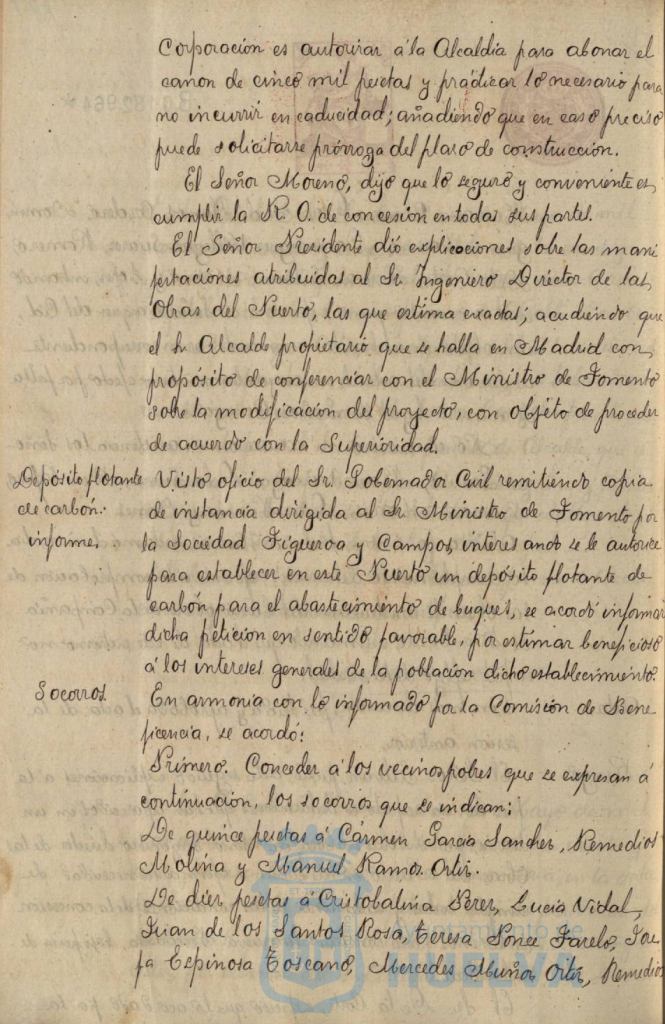 Corporación es autorizar á la Alcaldia para abonar el
canon de cinco mil pesetas y practicar lo necesario para
no incurrir en caducidad; añadiendo que en caso preciso
puede solicitarse prórroga del plazo de construcción.
El Señor Moreno, dijo que lo seguro y conveniente es,
cumplir la R. O. de concesión en todas sus partes.
El Señor Presidente dió explicaciones sobre las mani
festaciones atribuidas al Sr. Ingeniero Diréctor de las
Obras del Puerto, las que estima exactas; acudiendo que
el Sr. Alcalde propietario que se halla en Madrid con
propósito de conferenciar con el Ministro de Fomento
sobre la modificación del proyecto, con objéto de proceder
de acuerdo con la Superioridad.
Depósito flotante
de carbón.
informe.
Visto oficio del Sr. Gobernador Civil remitiendo copia
de instancia dirigida al Sr. Ministro de Fomento por
la Sociedad Figueroa y Campos, interesando se le autorice
para establecer en este Puerto un depósito flotante de
carbón para el abastecimiento de buques, se acordó informar
dicha peticion en sentido favorable, por estimar beneficioso
á los intereses generales de la población dicho establecimiento.
Socorros.
En armonia con lo informado por la Comisión de Bene
ficencia, se acordó:
Primero. Conceder á los vecinos pobres que se expresan á
continuación, los socorros que se indican:
De quince pesetas á Cármen Garcia Sanchez, Remedios
Molina y Manuel Ramos Ortiz.
De diez pesetas á Cristobalina Perez, Lucia Vidal,
Juan de los Santos Rosa, Teresa Ponce Farelo, Jose
fa Espinosa Toscano, Mercedes Muñoz Ortiz, Remedios
Ayuntamiento de
HUELVA